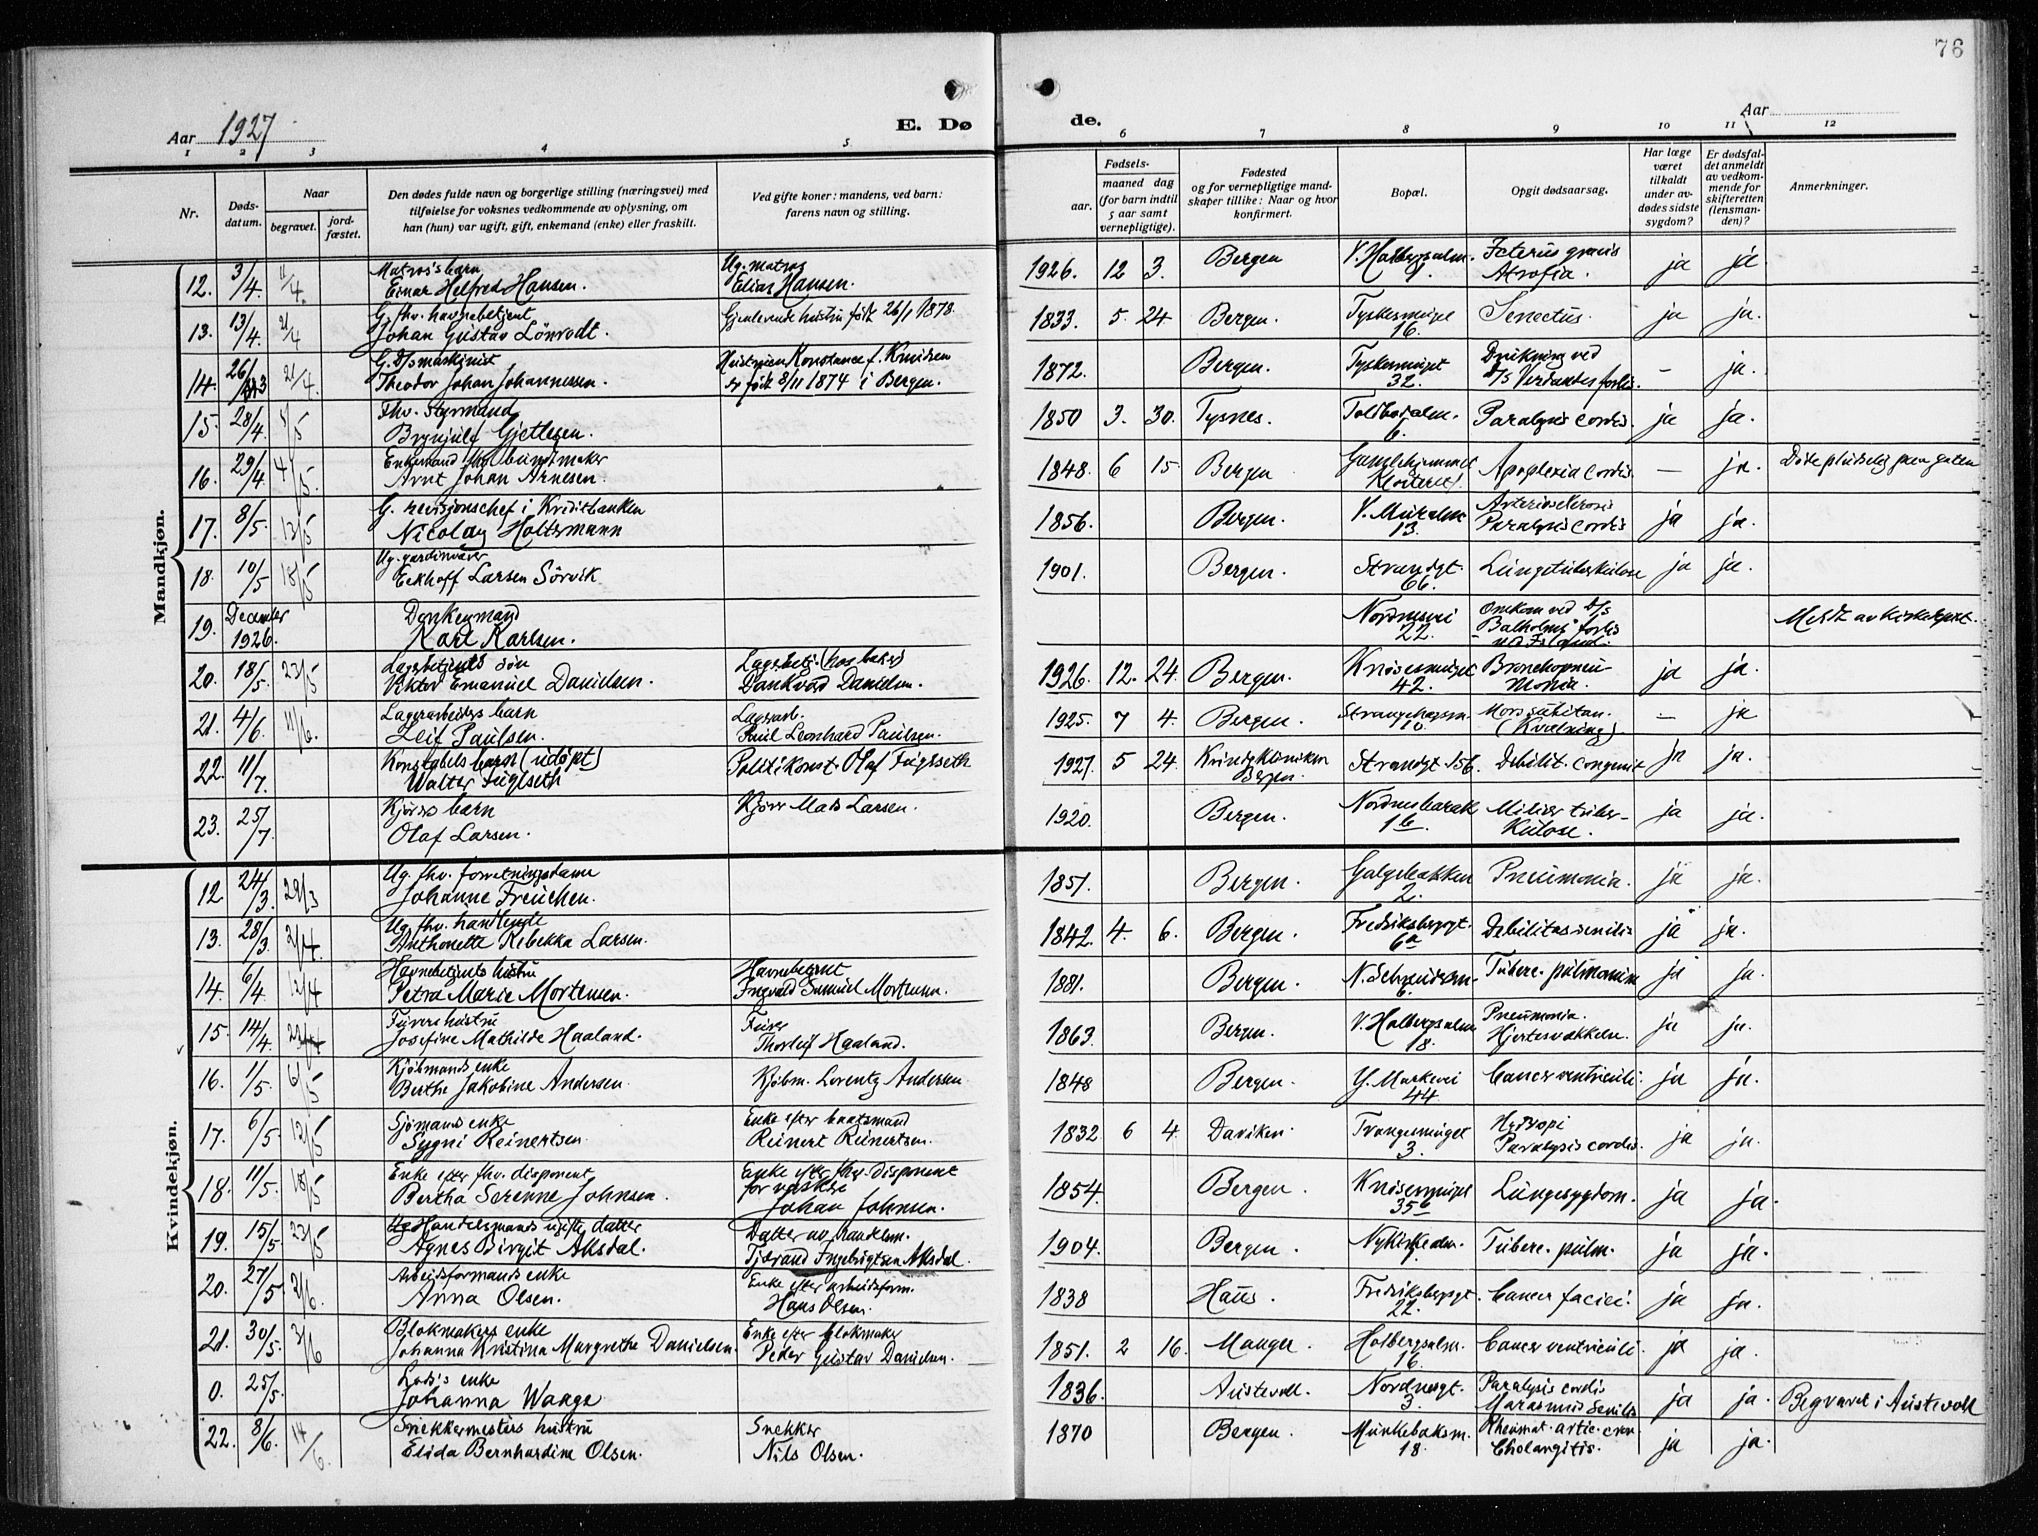 76
Aar 1927
E. Dø de.
Aar
1 2 3 4 5 6 7 8 9 10 11 12
Nr.
Døds-
datum.
Naar
begravet.
jord-
fæstet.
Den dødes fulde navn og borgerlige stilling (næringsvei) med
tilføielse for voksnes vedkommende av oplysning, om
han (hun) var ugift, gift, enkemand (enke) eller fraskilt.
Ved gifte koner: mandens, ved barn:
farens navn og stilling.
Fødsels-
aar.
maaned dag
(for barn indtil
5 aar samt
vernepligtige).
Fødested
og for vernepligtige mand-
skaper tillike: Naar og hvor
konfirmert.
Bopæl.
Opgit dødsaarsag.
Har læge
været
tilkaldt
under av-
dødes sidste
sygdom?
Er dødsfal-
det anmeldt
av vedkom-
mende for
skifteretten
(lensman-
den)?
Anmerkninger.
Mandkjøn.
12. 3/4. 11/4. Matros's barn Einar Helfred Hansen. Ug. matros Elias Hansen. 1926. 12 3. Bergen V. Holbergsalm. Icterus gravis Atrofia. ja ja.
13. 13/4. 21/4 G. fhv. havnebetjent Johan Gustav Lönrodt. Gjenlevende hustru født 26/1 1878. 1833. 5. 24. Bergen. Tyskesmuget 16. Senectus. ja ja.
14. 26/3 21/4. G. D/s maskinist Theodor Johan Johannessen. Hustruen Konstance f. Knudsen er født 8/11 1874 i Bergen. 1872. Bergen. Tyskesmuget 32. Drukning ved D/S Verdantes forlis. — ja.
15. 28/4. 4/5 Fhv. styrmand Brynjulf Gjetlesen. 1850 3. 30. Tysnes. Toldbodalm. 6. Paralysis cordis. ja ja.
16. 29/4 4/5. Enkemand fhv. buntmaker Arnt Johan Arnesen. 1848. 6 15. Bergen Gamlehjemmet Klosteret. Apoplexia cordis. — ja. Døde plutselig paa gaten
17. 8/5. 13/5 G. revisionschef i Kreditbanken Nicolay Holtermann 1856. Bergen. V. Muralm. 13. Arteriosclerosis Paralysis cordis ja ja.
18. 10/5 18/5 Ug. gardinvæver Eckhoff Larsen Sörvik 1901. Bergen. Strandgt. 66. Lungetuberkulose ja ja.
19. December 1926. Donkeymand Karl Karlsen. Nordnesvei 22. Omkom ved D/s "Balholms" forlis ved Island. Meldt av kirkekont.
20. 18/5. 23/5 Lagerbetjents sön Viktor Emanuel Danielsen. Lagerbetj. (hos baker) Dankvard Danielsen. 1926. 12. 24. Bergen. Knösesmuget 42. Bronchopneumonia. ja ja.
21. 4/6. 11/6. Lagerarbeiders barn Leif Paulsen. Lagerarb. Paul Leonhard Paulsen. 1925. 7 4. Bergen. Strangehagen 10. Mors subitan. (Kvælning). — ja
22. 11/7. Konstabels barn (udöpt) Walter Fuglseth Politikonst. Olaf Fuglseth 1927. 5 24. Kvindeklinikken Bergen. Strandgt 156. Debilit. congenit. ja ja.
23. 25/7. Kjörers barn Olaf Larsen. Kjörer Mads Larsen. 1920. Bergen. Nordnesbarak 1b. Miliær tuberkulose. ja ja.
Kvindekjøn.
12. 24/3. 29/3 Ug. fhv. forretningsdame Johanne Freuchen. 1851. Bergen. Galgebakken 2. Pneumonia. ja ja.
13. 28/3. 2/4. Ug. fhv. handlende Anthonette Rebekka Larsen. 1842. 4. 6. Bergen. Fredriksbergsgt. 6a Debilitas senilis ja ja.
14. 6/4. 12/4 Havnebetjents hustru Petra Marie Mortensen. Havnebetjent Ingvald Samuel Mortensen. 1881. Bergen. 6. Tuberc. pulmonum ja ja.
15. 14/4. 22/4 Furers hustru Josefine Mathilde Haaland. Furer Thorleif Haaland. 1863. Bergen. V. Holbergsalm 18. Pneumonia. Hjertesvækkelse. ja ja.
16. 1/5. 6/5 Kjöbmands enke Berthe Jakobine Andersen. Kjöbm. Lorentz Andersen 1848 Bergen. Y. Markevei 44. Cancer ventriculi. ja ja.
17. 6/5. 12/5 Sjömands enke Sygni Reinertsen. Enke efter baatsmand Reinert Reinertsen. 1832 6 4. Daviken. Trangesmuget 3. Hydropsi Paralysis cordis. ja ja.
18. 11/5. 18/5 Enke efter fhv. disponent Bertha Serenne Johnsen. Enke efter fhv. disponent for vaskeri Johan Johnsen. 1854. Bergen. Knösesmuget 35b Lungesygdom. ja ja.
19. 15/5 23/5 Ug Handelsmands ugifte datter Agnes Birgit Aksdal. Datter av handelsm. Tjerand Ingebrigtsen Aksdal. 1904. Bergen. Nykirkealm. Tuberc. pulm. ja ja.
20. 27/5 2/6. Arbeidsformands enke Anna Olsen. Enke efter arbeidsform. Hans Olsen. 1838 Haus. Fredriksbergsgt. 22. Cancer faciei. ja ja.
21. 30/5. 3/6 Blokmakers enke Johanna Kristina Margrethe Danielsen. Enke efter blokmaker Peder Gustav Danielsen. 1851. 2 16. Manger Holbergsalm. 16. Cancer ventriculi. ja ja.
0. 25/5. Lods's enke Johanna Waage 1836. Austevoll. Nordnesgt. 3. Paralysis cordis Marasmus senilis ja ja. Begravet i Austevoll
22. 8/6. 14/6. Snekkermesters hustru Elida Bernhardine Olsen. Snekker Nils Olsen. 1870 Bergen. Munkebaksm. 18. Rheumat. artic. cron. Cholangitis. ja ja.